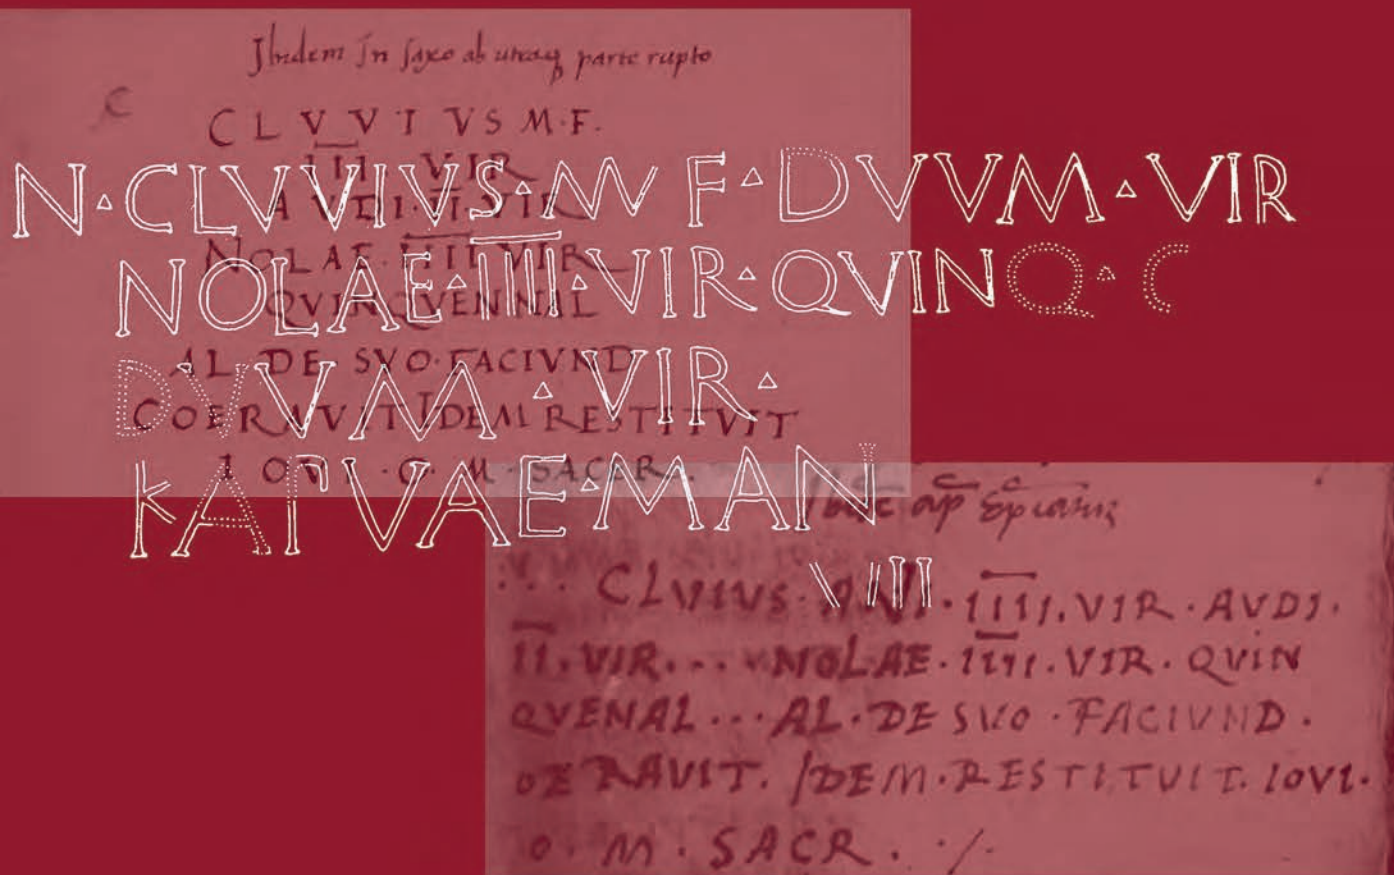 Ibidem in saxo ab utraq parte rupto
C
CLVVIVS M·F·
IIII VIR
AVDI·II·VIR
NOLAE·IIII VIR
QVINQVENNAL
AL DE SVO·FACIVND
COERAVIT IDEM RESTITVIT
IOVI·O·M·SACR.
N·CLVVIVS·M F·DVVM·VIR
NOLAE·IIII·VIR·QVINQ·C
DVVM·VIR·
KAPVAE·MAN
VIII
... CLVIVS· ·IIII·VIR·AVDI·
II·VIR... NOLAE·IIII·VIR·QVIN
QVENAL...AL·DE SVO·FACIVND.
OERAVIT. IDEM·RESTITVIT. IOVI·
O·M·SACR.